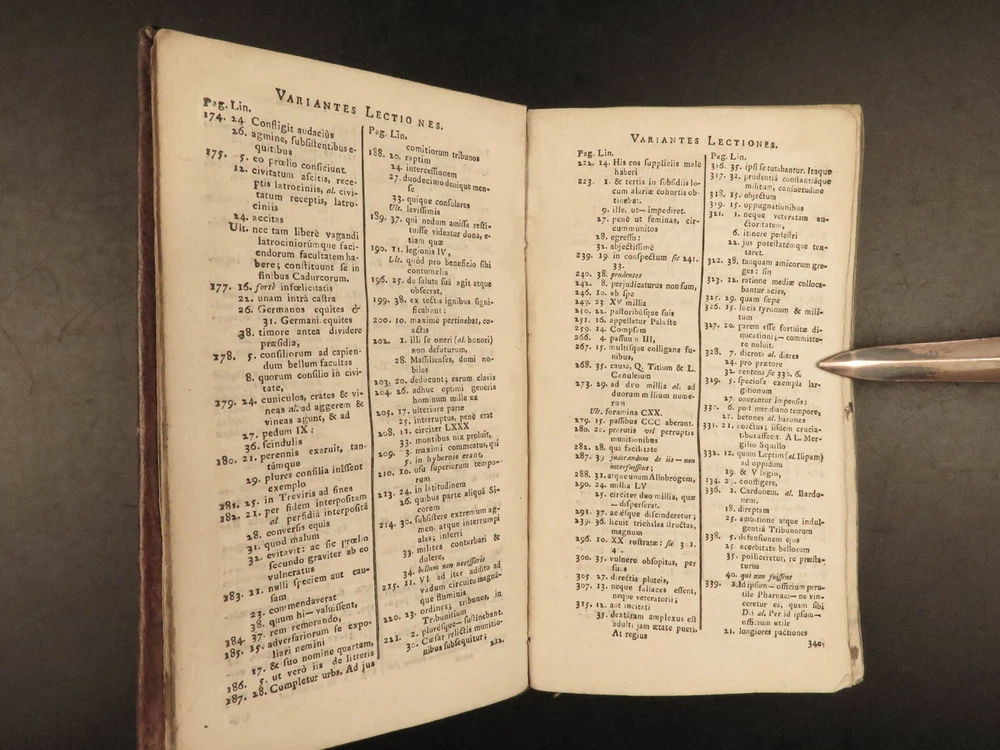 VARIANTES LECTIONES.
Pag. Lin.
174. 24. Confligit audaciùs
26. agmine, subsistentibus e-
quitibus
175. 5. eo prœlio conficiunt.
12. civitatum ascitis, rece-
ptis latrociniis, al. civi-
tatum receptis, latro-
ciniis
24. accitas
Ult. nec tam liberè vagandi
latrociniorúmque faci-
endorum facultatem ha-
bere; constituunt se in
finibus Cadurcorum.
177. 16. fortè infœlicitatis
22. unam intrà castra
26. Germanos equites &
31. Germani equites
38. timore antea dividere
præsidi;
178. 5. consiliorum ad capien-
dum bellum facultas
8. quorum consilio in civi-
tate,
279. 24. cuniculos, crates & vi-
neas al. ad aggerem &
vineas agunt, & ad
27. pedum IX:
36. scindulis
180. 21. perennis exaruit, tan-
támque
29. plures consilia inissent
exemplo
181. 25. in Treviris ad fines
182. 21. per fidem interpositam
al perfidiâ interpositâ
28. conversis equis
31. quod malum
32. evitavit: ac sic prœlio
secundo graviter ab eo
vulneratus
183. 11. nulli speciem aut cau-
sam
23. commendaverat
38. quum hi—valuissent,
184. 37. rem remorando,
185. 15. adversariorum se expo-
liari nemini
17. & suo nomine quartam,
186. 5. ut verò iis de litteris
187. 28. Completur urbs. Ad jus
Pag. Lin.
comitiorum tribunos
188. 20. raptim
24. intercessionem
27. duodecimo denique men-
se
33. quique consulares
Ult. levissimis
189. 37. qui nedum amissa resti-
tuisse videatur dona, e-
tiam quæ
190. 11. legionis IV,
Ult. quòd pro beneficio sibi
contumelia
196. 25. de salute suâ agit atque
obsecrat,
199. 38. ex tectis ignibus signi-
ficabant:
200. 10. maximè pertinebat, co-
actis
202. 1. illi se oneri (al. honori)
non defuturum,
28. Massilienses, domi no-
biles
203. 20. deducunt; earum clavia
204. 26. adhuc optimi generis
hominum mille ex
205. 17. ulteriore parte
25. interruptus, penè erat
208. 11. circiter LXXX
33. montibus nix proluit,
209. 3. maximi commeatus, qui
5. in hybernis erant,
210. 10. usu superiorum tempo-
rum
213. 24. in latitudinem
26. quibus parte aliquâ Si-
corem
214. 30. subsistere extremum ag-
men, atque interrumpi
alas; inferri
33. milites conterbari &
dolere,
34. bellum non necessario
215. 11. VI ad iter addito ad
vadum circuitu magná-
que fluminis
220. 23. ordines; tribunos, in
Tribunitium
221. 2. plurésque—sustinebant.
30. Cæsar relictis munitio-
nibus subsequitur;
222.
VARIANTES LECTIONES.
Pag. Lin.
222. 14. His eos suppliciis malè
haberi
223. 1. & tertia in subsidiis lo-
cum alariæ cohortis ob-
tinebat.
9. ille, ut—impediret.
27. penè ut feminas, cir-
cummunitos
28. egressi:
31. abjectissimè
239. 19. in conspectum sic 241.
33.
240. 38. prudentes
242. 8. perjudicaturus non sum,
246. 10. ab spe
249. 23. XV millia
250. 22. pastoribúsque suis
251. 16. appellatur Palæste
259. 14. Compsam
266. 4. passuum III,
267. 15. multisque colligans fu-
nibus,
268. 35. causa, Q. Titium & L.
Canuleium
273. 29. ad dro millia al. ad
duorum millium nume-
rum
Ult. foramina CXX.
279. 15. passibus CCC aberant.
280. 22. prorutis vel perruptis
munitionibus
281. 28. qua facilitate
287. 37. judicandum de iis—non
interfuissent;
288. 31. atque unum Allobrogem,
290. 24. millia LV
25. circiter duo millia, quæ
—disperserat.
291. 37. ac ésque discinderetur;
293. 36. sicuti trichelas structas,
magnum
296. 10. XX rostratæ: sic 301.
4.
300. 35. vulnere obsopitus, per
suos
305. 27. directis pluteis,
307. 13. neque fallaces essent,
neque veteratorii;
315. 12. aut incitati
35. dexteram amplexus est
adulti jam ætate pueri.
At regius
Pag. Lin.
316. 35. ipsi se tutabantur. Itaque
317. 32. prudentiâ constantiâque
militum, consuetudine
318. 15. objectum
319. 15. oppugnationibus
321. 1. neque veteratam au-
ctoritatem,
6. itinere pedestri
22. jus potestatémque ten-
taret.
322. 38. tanquam amicorum gre-
ges: sin
323. 12. ratione mediæ colloca-
bantur acies,
325. 29. quam sæpe
326. 15. locis tyronum & mili-
tum
327. 20. parem esse fortuitæ di-
micationi;—committe-
re noluit.
328. 7. dicrota al. dieres
24. pro prætore
32. centens sic 330. 6.
329. 5. speciosa exempla lar-
gitionum
27. onerantur impensis:
330. 6. post meridiano tempore,
27. betones al. barones
331. 21. coactus; iisdem crucia-
tibus affecit. A L. Mer-
gilio Squillo
332. 12. quum Leptim (al. Ilipam)
ad oppidum
19. & V legio,
334. 20. configere,
336. 1. Cardonem. al. Bardo-
nem.
18. direptam
25. ambitione atque indul-
gentia Tribunorum
338. 5. defensionem ejus
25. acerbitate bellorum
35. polliceretur, re præsta-
turus
40. qui non fuissent
339. 2. Ad ipsum—officium peru-
tile Pharnaci—ne vin-
ceretur ea, quam sibi
Dii al. Per id ipsum—
officium utile
21. longiores pactiones
340.